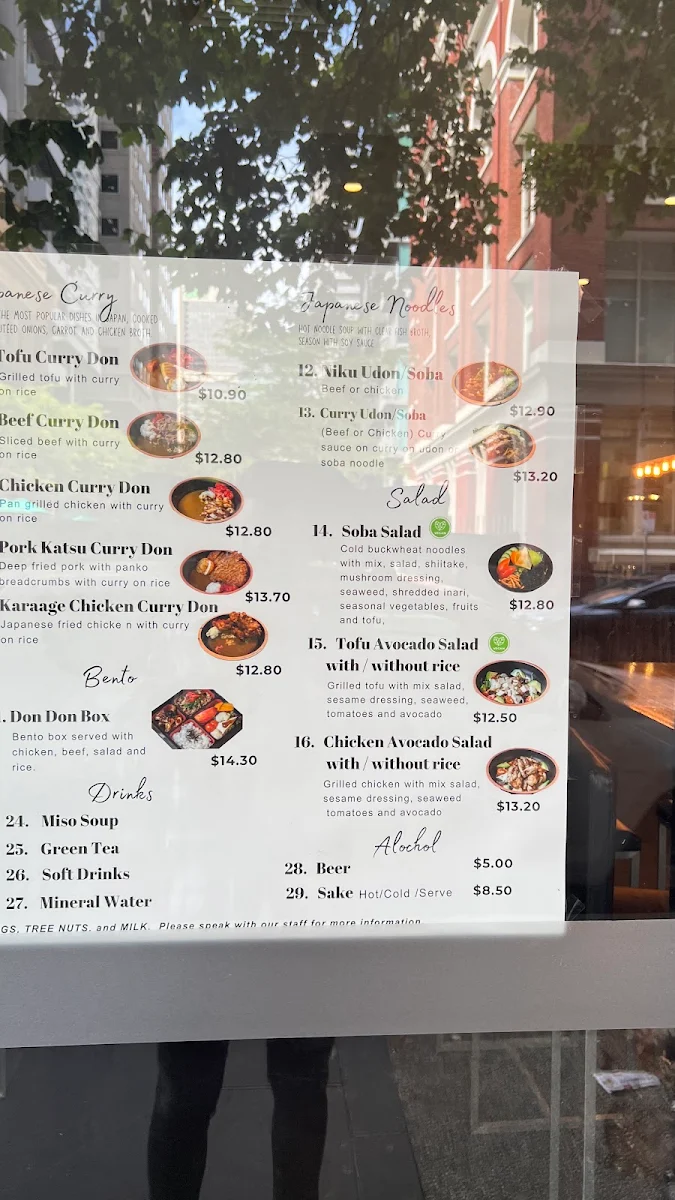 panese Curry
HE MOST POPULAR DISHES IN JAPAN, COOKED
ONIONS, CARROT AND CHICKEN BROTH.
Tofu Curry Don
Grilled tofu with curry
on rice
$10.90
Beef Curry Don
Sliced beef with curry
on rice
$12.80
Chicken Curry Don
Pan grilled chicken with curry
on rice
$12.80
Pork Katsu Curry Don
Deep fried pork with panko
breadcrumbs with curry on rice
$13.70
Karaage Chicken Curry Don
Japanese fried chicke n with curry
on rice
$12.80
Bento
. Don Don Box
Bento box served with
chicken, beef, salad and
rice.
$14.30
Drinks
24. Miso Soup
25. Green Tea
26. Soft Drinks
27. Mineral Water
Japanese Noodles
HOT NOODLE SOUP WITH CLEAR FISH BROTH,
SEASON WITH SOY SAUCE
12. Niku Udon/Soba
Beef or chicken
$12.90
13. Curry Udon/Soba
(Beef or Chicken) Cu y
sauce on curry on udon or
soba noodle
$13.20
Salad
14. Soba Salad
Cold buckwheat noodles
with mix, salad, shiitake,
mushroom dressing,
seaweed, shredded inari,
seasonal vegetables, fruits
and tofu,
$12.80
15. Tofu Avocado Salad
with / without rice
Grilled tofu with mix salad,
sesame dressing, seaweed,
tomatoes and avocado
$12.50
16. Chicken Avocado Salad
with / without rice
Grilled chicken with mix salad,
sesame dressing, seaweed
tomatoes and avocado
$13.20
Alochol
28. Beer $5.00
29. Sake Hot/Cold /Serve $8.50
GS, TREE NUTS, and MILK. Please speak with our staff for more information